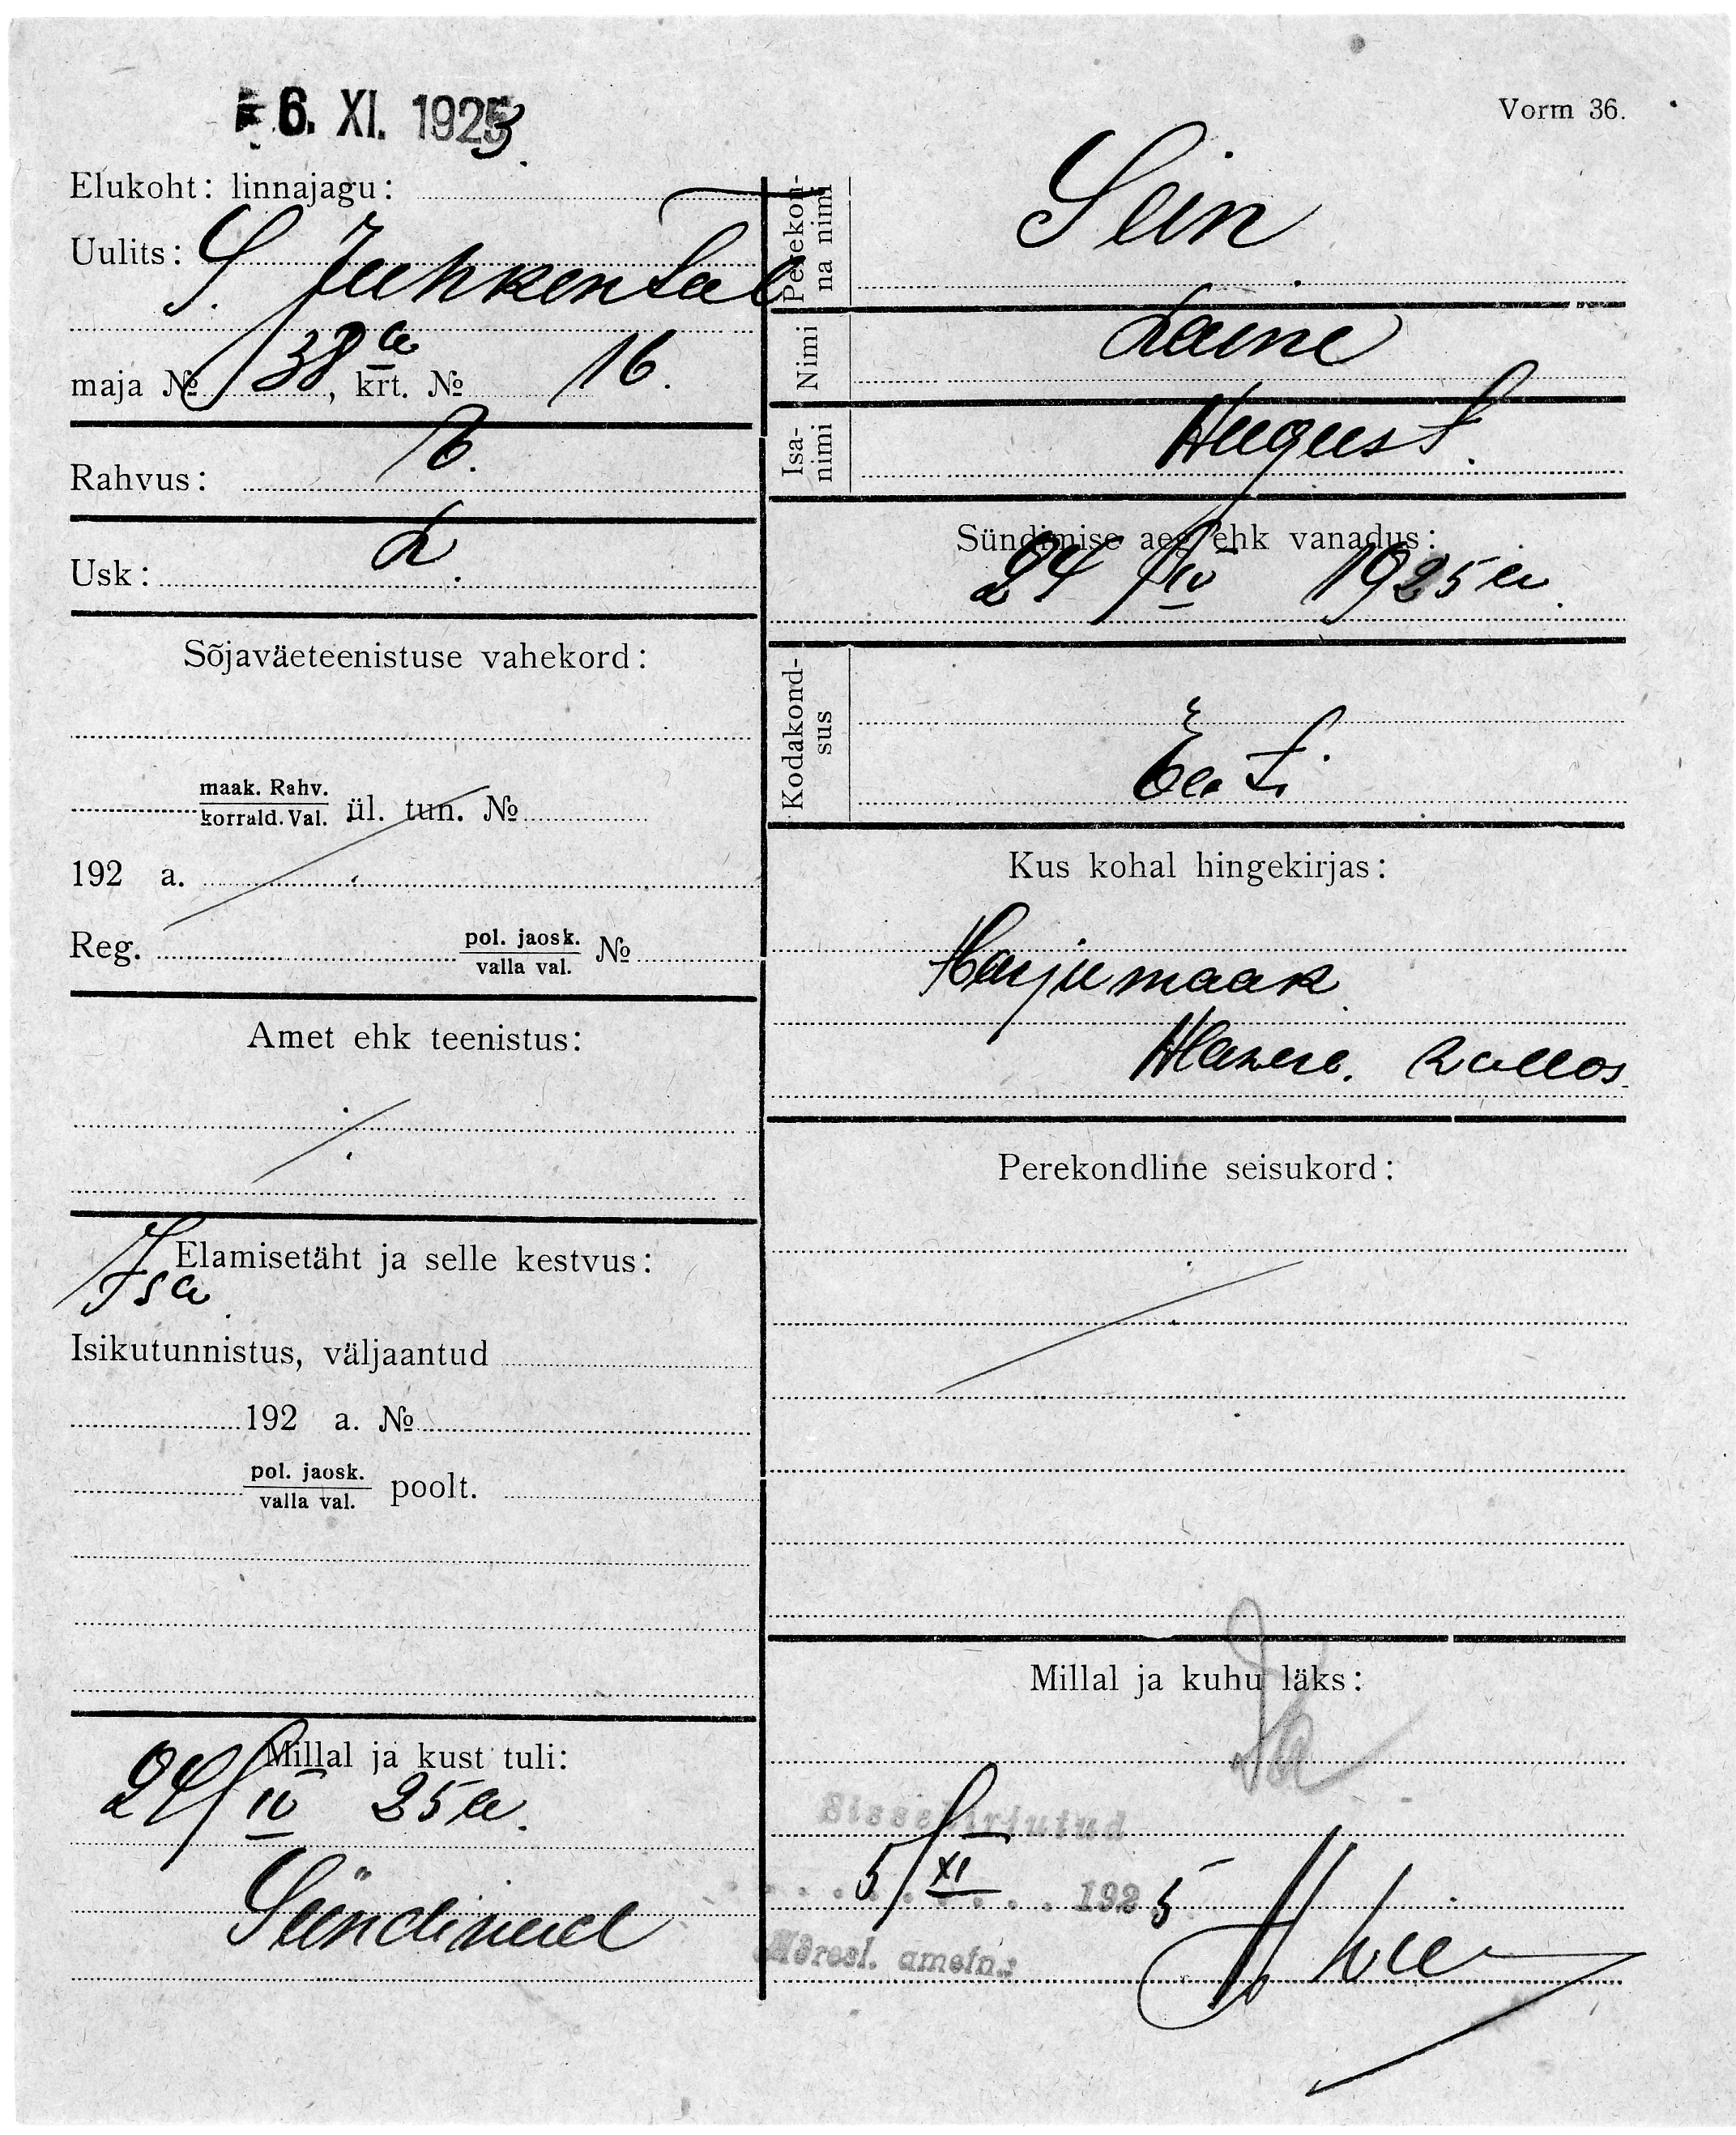 6. XI. 1925
Vorm 36.
Elukoht: linnajagu:
Uulits: S. Juhkental
maja № 38a, krt. № 16.
Rahvus: E.
Usk: L.
Sõjaväeteenistuse vahekord:
maak. Rahv.
korrald. Val. ül. tun. №
192 a.
Reg. pol. jaosk. №
valla val.
Amet ehk teenistus:
Elamisetäht ja selle kestvus:
Isa
Isikutunnistus, väljaantud
192 a. №
pol. jaosk.
valla val. poolt.
Millal ja kust tuli:
24/IV 25 a.
Sündinud
Perekonna nimi
Sein
Nimi
Laine
Isanimi
August.
Sündimise aeg ehk vanadus:
24/IV 1925 a.
Kodakondsus
Eesti
Kus kohal hingekirjas:
Harjumaak
vallas
Perekondline seisukord:
Millal ja kuhu läks:
Sissekirjutud
5/XI 1925
Adresl. ametn.: